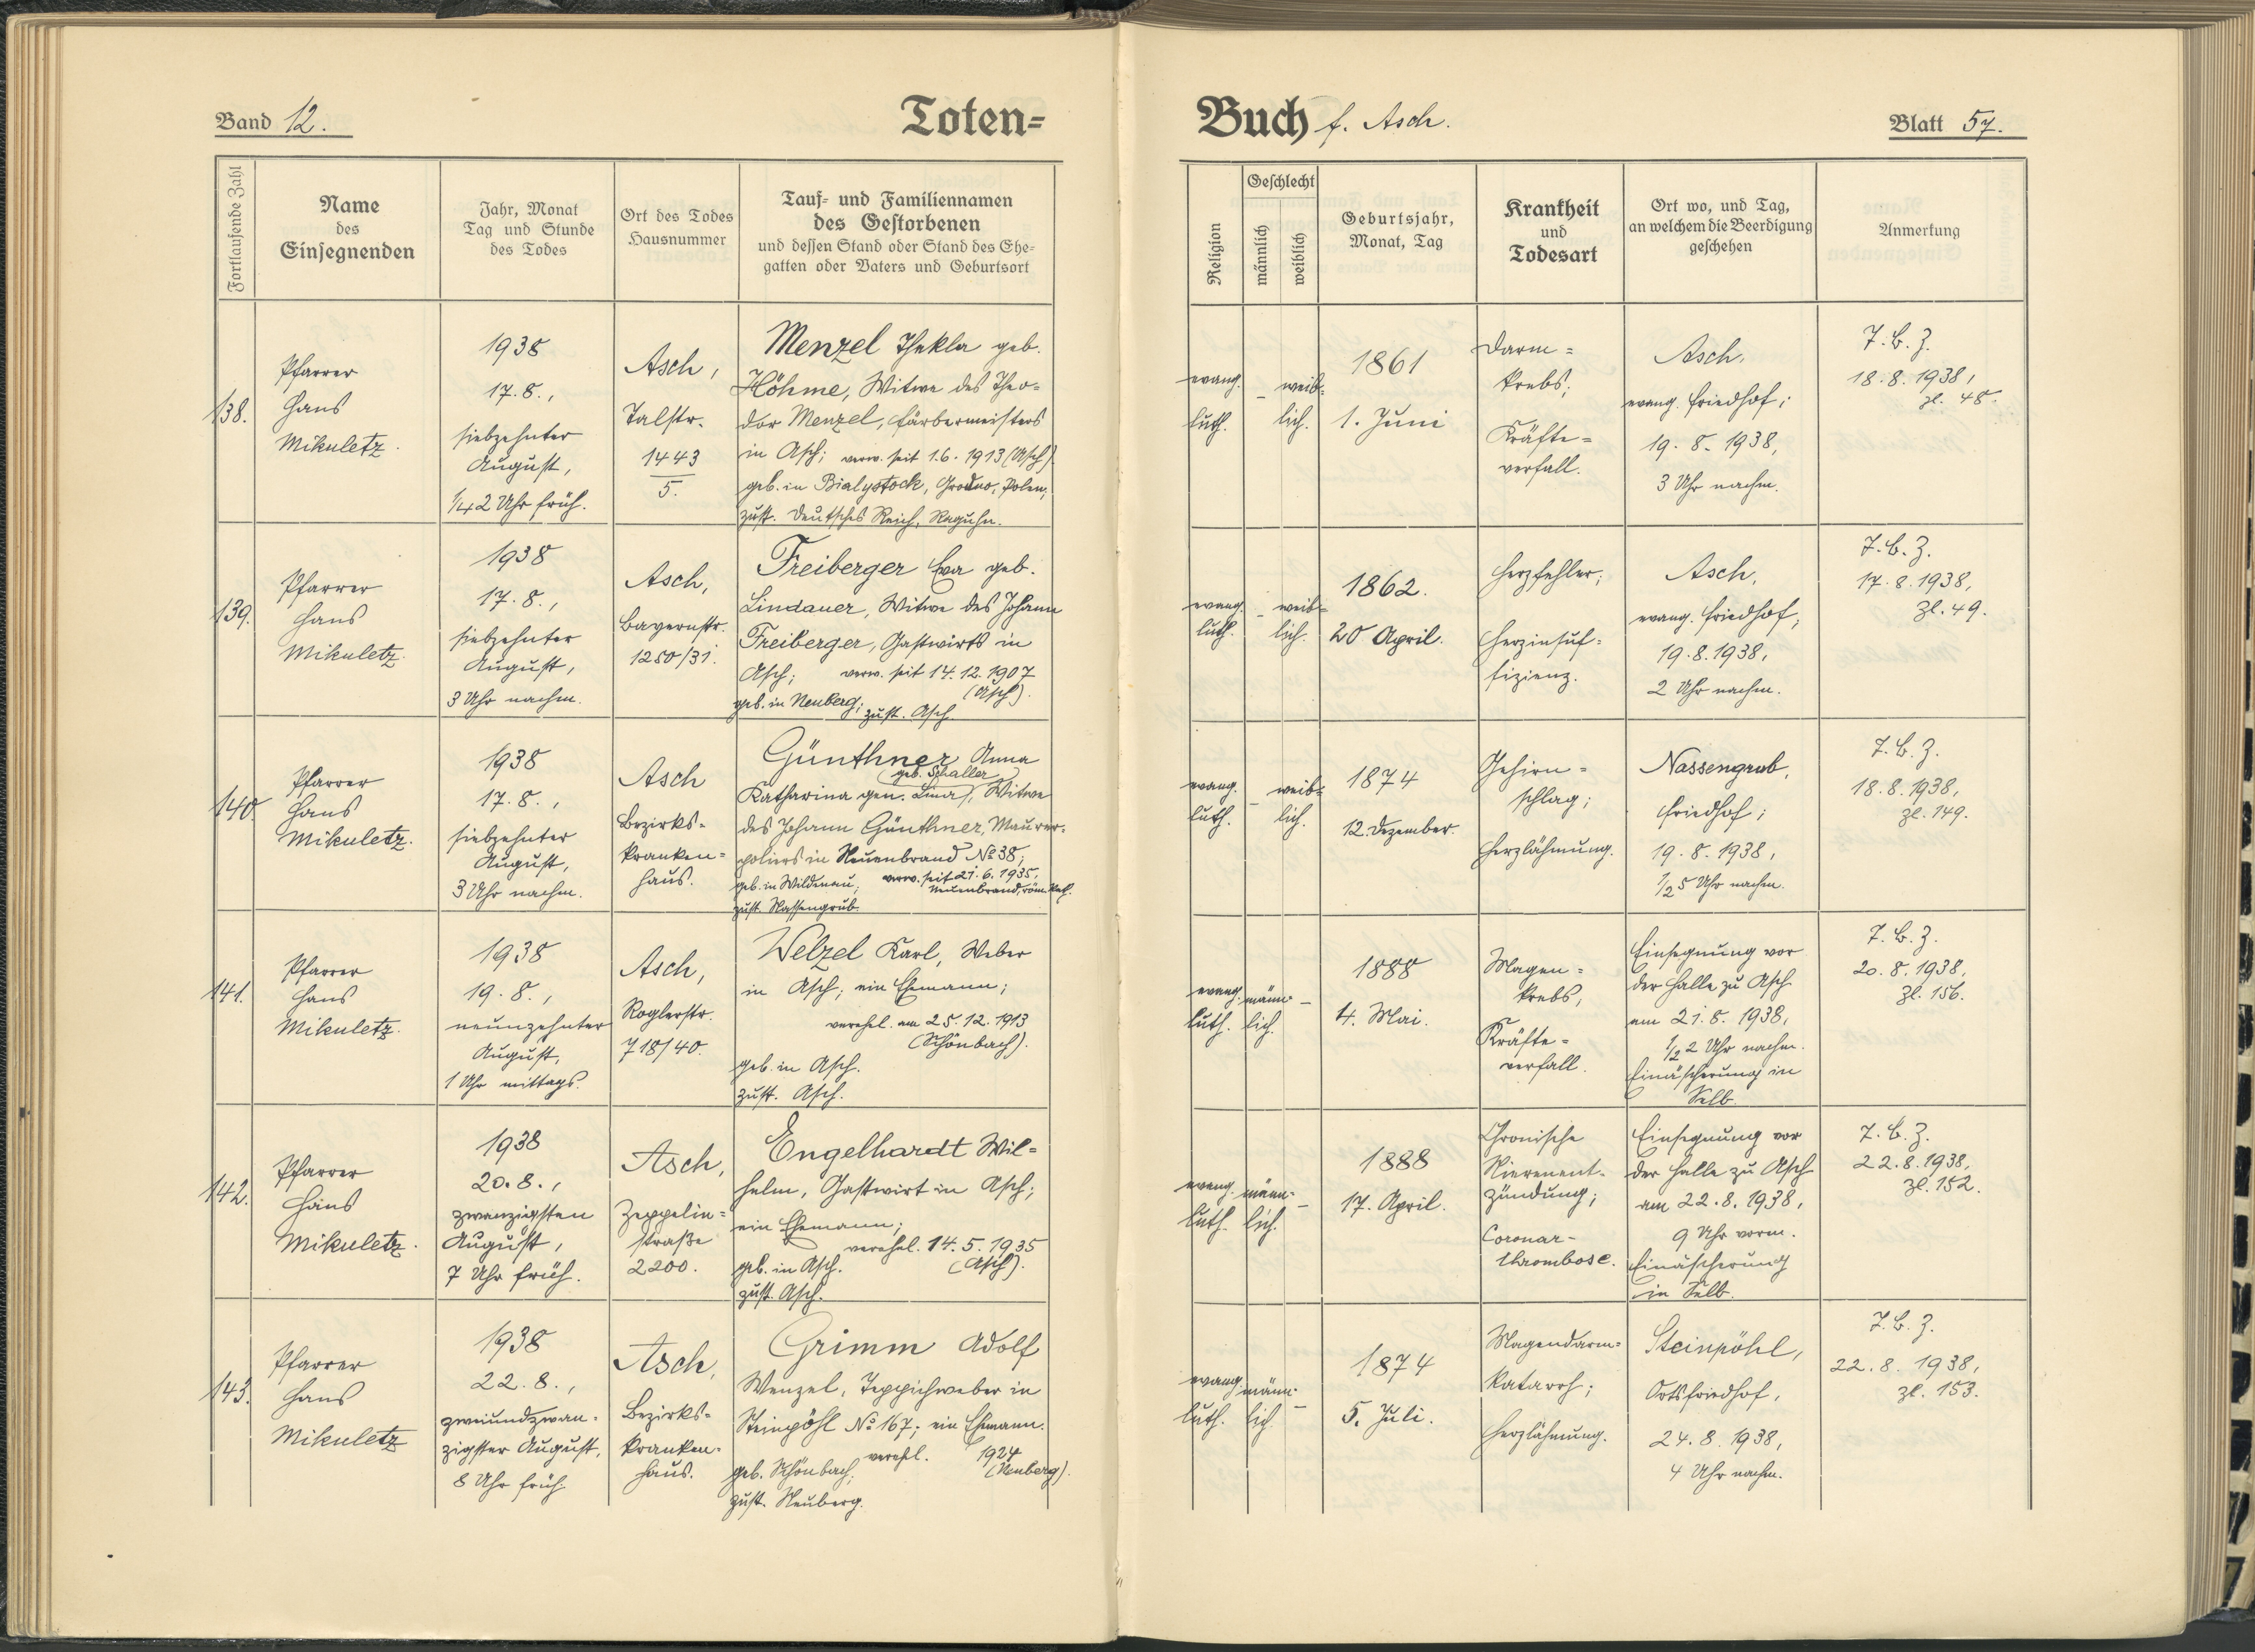 Band 12.
Toten=
Buch f. Asch.
Blatt 57.
Fortlaufende Zahl
Name
des
Einsegnenden
Jahr, Monat
Tag und Stunde
des Todes
Ort des Todes
Hausnummer
Tauf= und Familiennamen
des Gestorbenen
und dessen Stand oder Stand des Ehe=
gatten oder Vaters und Geburtsort
Religion
Geschlecht
männlich
weiblich
Geburtsjahr,
Monat, Tag
Krankheit
und
Todesart
Ort wo, und Tag,
an welchem die Beerdigung
geschehen
Anmerkung
138.
Pfarrer
Hans
Mikuletz.
1938
17.8.,
siebzehnter
August,
1/4 2 Uhr früh.
Asch,
Talstr.
1443
5.
Menzel Thekla geb.
Höhme, Witwe des Theo=
dor Menzel, Färbermeisters
in Asch; verw. seit 1.6.1913 (Asch)
geb. in Bialystock, Grodno, Polen;
zust. Deutsches Reich, Raguhn.
evang.
luth.
–
weib=
lich.
1861
1. Juni
Darm=
krebs;
Kräfte=
verfall.
Asch,
evang. Friedhof;
19.8.1938,
3 Uhr nachm.
T.B.Z.
18.8.1938,
Zl. 48.
139.
Pfarrer
Hans
Mikuletz.
1938
17.8.,
siebzehnter
August,
3 Uhr nachm.
Asch,
Bayernstr.
1280/31.
Freiberger Eva geb.
Lindauer, Witwe des Johann
Freiberger, Gastwirts in
Asch; verw. seit 14.12.1907
(Asch).
geb. in Neuberg; zust. Asch.
evang.
luth.
–
weib=
lich.
1862.
20 April.
Herzfehler;
Herzinsuf=
fizienz.
Asch,
evang. Friedhof;
19.8.1938,
2 Uhr nachm.
T.B.Z.
17.8.1938,
Zl. 49.
140.
Pfarrer
Hans
Mikuletz.
1938
17.8.,
siebzehnter
August,
3 Uhr nachm.
Asch
Bezirks=
kranken=
haus.
Günthner Anna
geb. Schaller
Katharina gen. Lina), Witwe
des Johann Günthner, Maurer=
poliers in Neuenbrand No 38;
geb. in Wildenau; verw. seit 21.6.1935,
Neuenbrand, röm. kath.
zust. Nassengrub.
evang.
luth.
–
weib=
lich.
1874
12. Dezember.
Gehirn=
schlag;
Herzlähmung.
Nassengrub,
Friedhof;
19.8.1938,
1/2 5 Uhr nachm.
T.B.Z.
18.8.1938,
Zl. 149.
141.
Pfarrer
Hans
Mikuletz.
1938
19.8.,
neunzehnter
August,
1 Uhr mittags.
Asch,
Roglerstr.
718/40.
Welzel Karl, Weber
in Asch; ein Ehemann;
verehel. am 25.12.1913
(Schönbach).
geb. in Asch.
zust. Asch.
evang.
luth.
männ=
lich.
–
1888
4. Mai.
Magen=
krebs,
Kräfte=
verfall.
Einsegnung vor
der Halle zu Asch
am 21.8.1938,
1/2 2 Uhr nachm.
Einäscherung in
Selb.
T.B.Z.
20.8.1938,
Zl. 156.
142.
Pfarrer
Hans
Mikuletz.
1938
20.8.,
zwanzigsten
August,
7 Uhr früh.
Asch,
Zeppelin=
straße
2200.
Engelhardt Wil=
helm, Gastwirt in Asch;
ein Ehemann;
verehel. 14.5.1935
(Asch).
geb. in Asch.
zust. Asch.
evang.
luth.
männ=
lich.
–
1888
17. April.
Chronische
Nierenent=
zündung;
Coronar-
thrombose.
Einsegnung vor
der Halle zu Asch
am 22.8.1938,
9 Uhr vorm.
Einäscherung
in Selb.
T.B.Z.
22.8.1938,
Zl. 152.
143.
Pfarrer
Hans
Mikuletz
1938
22.8.,
zweiundzwan=
zigster August,
8 Uhr früh.
Asch,
Bezirks=
kranken=
haus.
Grimm Adolf
Wenzel, Teppichweber in
Steinpöhl No 167; ein Ehemann.
verehel. 1924
(Neuberg).
geb. Schönbach;
zust. Neuberg.
evang.
luth.
männ=
lich
–
1874
5. Juli.
Magendarm=
katarrh;
Herzlähmung.
Steinpöhl,
Ortsfriedhof,
24.8.1938,
4 Uhr nachm.
T.B.Z.
22.8.1938,
Zl. 153.